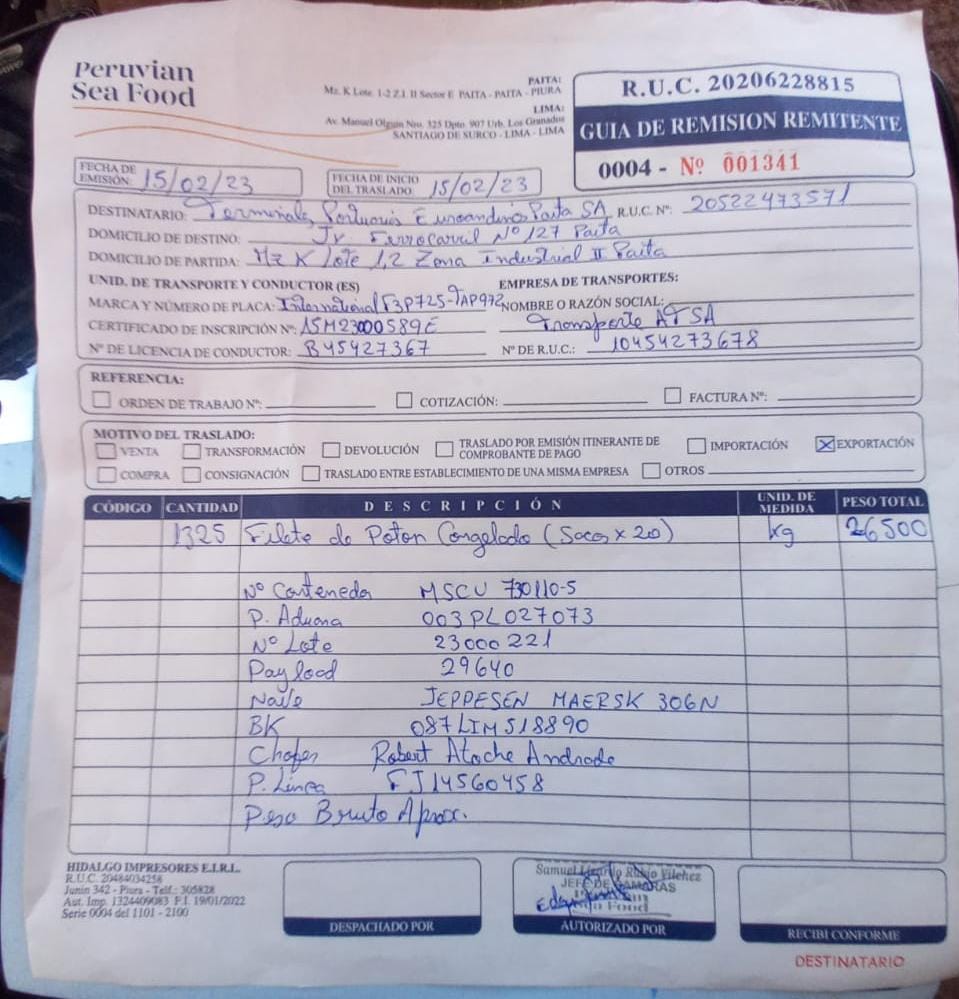 Peruvian
Sea Food
PAITA:
Mz. K Lote. 1-2 Z.I. II Sector E PAITA - PAITA - PIURA
LIMA:
Av. Manuel Olguin Nro. 325 Dpto. 907 Urb. Los Granados
SANTIAGO DE SURCO - LIMA - LIMA
R.U.C. 20206228815
GUIA DE REMISION REMITENTE
0004 - Nº 001341
FECHA DE EMISIÓN: 15/02/23
FECHA DE INICIO DEL TRASLADO: 15/02/23
DESTINATARIO: Terminales Portuarios Euroandinos Paita SA R.U.C. Nº: 20522473571
DOMICILIO DE DESTINO: Jr. Ferrocarril Nº 127 Paita
DOMICILIO DE PARTIDA: Mz K Lote 1,2 Zona Industrial II Paita
UNID. DE TRANSPORTE Y CONDUCTOR (ES) EMPRESA DE TRANSPORTES:
MARCA Y NÚMERO DE PLACA: International NOMBRE O RAZÓN SOCIAL:
CERTIFICADO DE INSCRIPCIÓN Nº: Transporte
Nº DE LICENCIA DE CONDUCTOR: B45427367 Nº DE R.U.C.: 10454273678
REFERENCIA:
ORDEN DE TRABAJO Nº: COTIZACIÓN: FACTURA Nº:
MOTIVO DEL TRASLADO:
VENTA TRANSFORMACIÓN DEVOLUCIÓN TRASLADO POR EMISIÓN ITINERANTE DE COMPROBANTE DE PAGO IMPORTACIÓN X EXPORTACIÓN
COMPRA CONSIGNACIÓN TRASLADO ENTRE ESTABLECIMIENTO DE UNA MISMA EMPRESA OTROS
CÓDIGO CANTIDAD DESCRIPCIÓN UNID. DE MEDIDA PESO TOTAL
1325 Filete de Poton Congelado (Sacos x 20) kg 26500
Nº Contenedor MSCU 730110-5
P. Aduana 003PL027073
Nº Lote 23000221
Payload 29640
Nave JEPPESEN MAERSK 306N
BK 087LIM518890
Chofer Robert Atoche Andrade
P. Linea FJ14560458
Peso Bruto Aprox.
HIDALGO IMPRESORES E.I.R.L.
R.U.C. 20484034258
Junin 342 - Piura - Telf.: 305828
Aut. Imp. 1324409083 F.I. 19/01/2022
Serie 0004 del 1101 - 2100
DESPACHADO POR
JEFE DE CAMARAS
AUTORIZADO POR
RECIBI CONFORME
DESTINATARIO